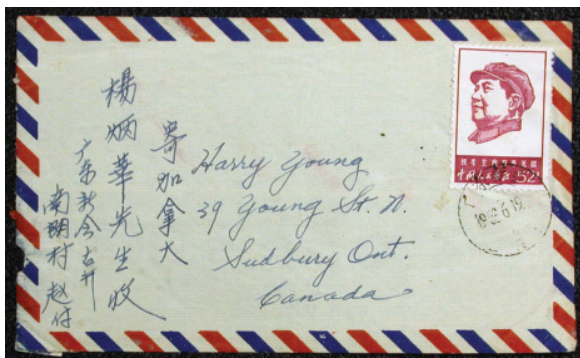 寄加拿大
楊炳華先生收
广东新会古井
南明村 赵付
Harry Young
39 Young St. N.
Sudbury Ont.
Canada
中国人民邮政 52